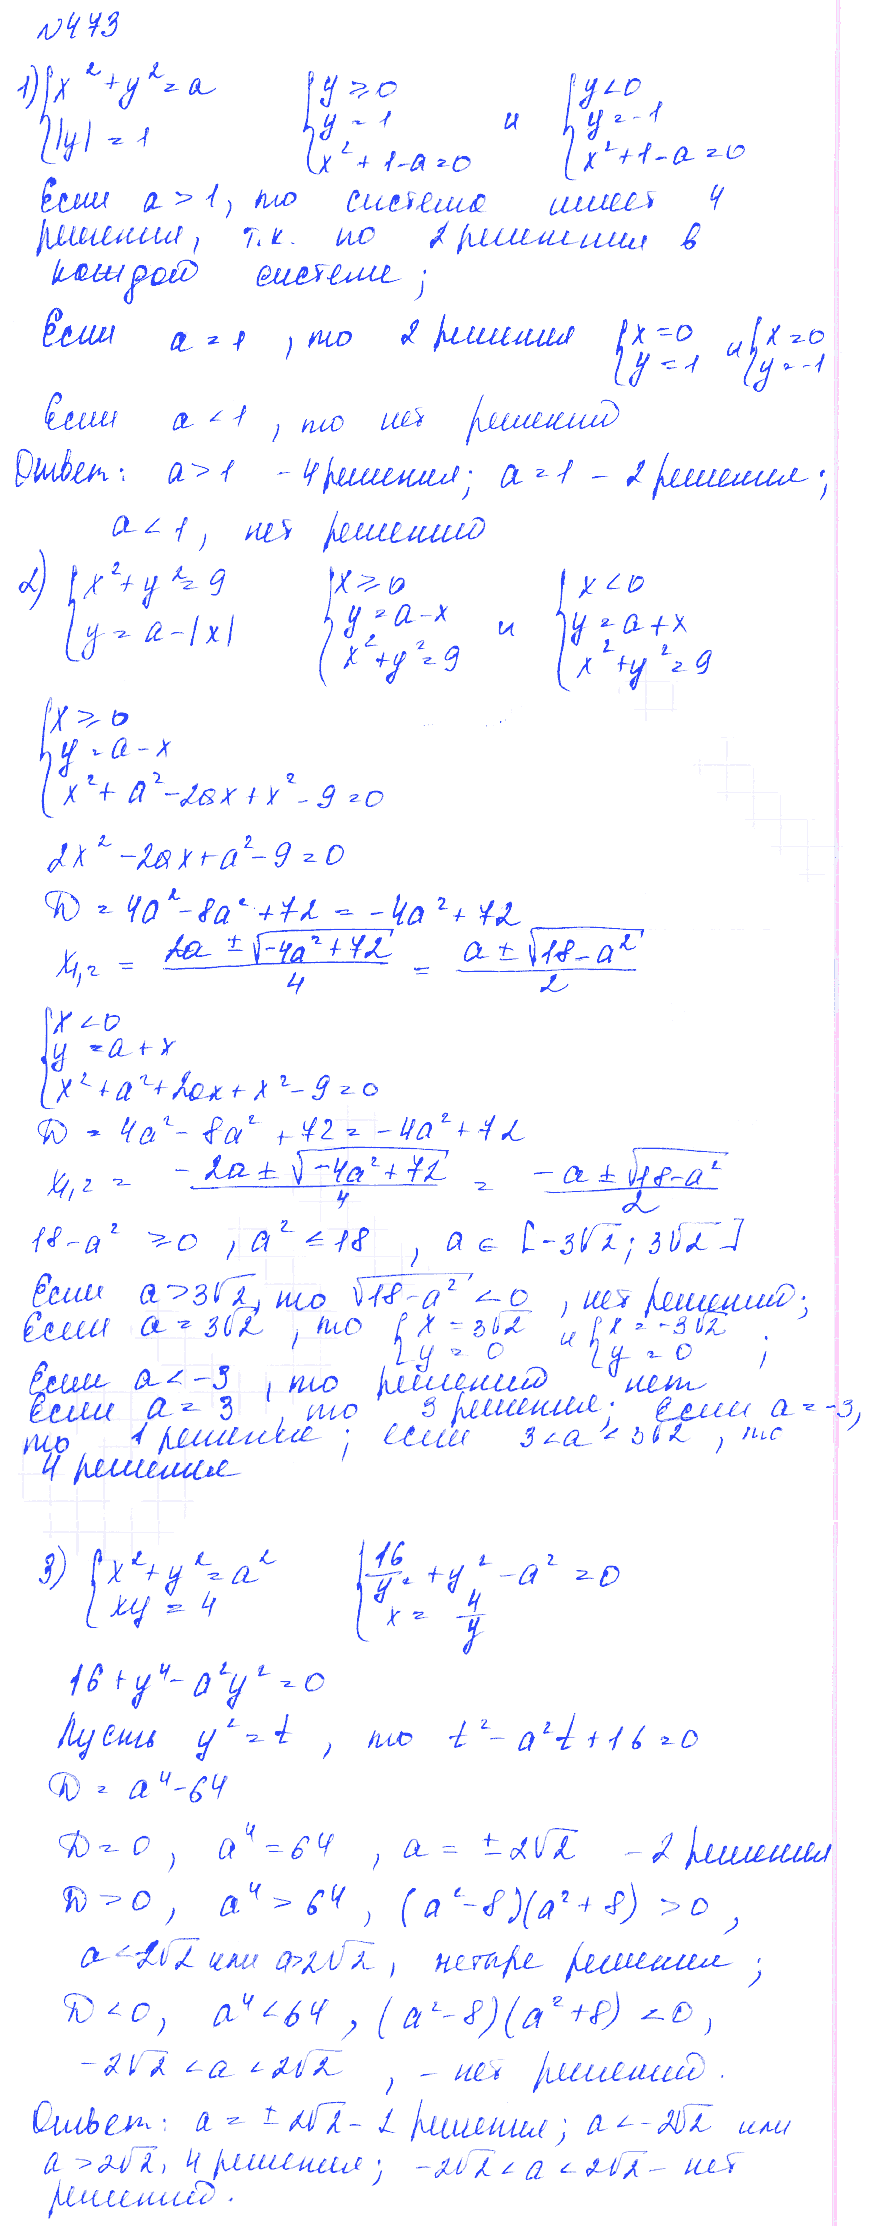 №473
1) {x² + y² = a {y ≥ 0 {y < 0
{|y| = 1 {y = 1 и {y = -1
{x² + 1 - a = 0 {x² + 1 - a = 0
Если a > 1, то система имеет 4
решения, т.к. по 2 решения в
каждой системе;
Если a = 1, то 2 решения {x = 0 и {x = 0
{y = 1 {y = -1
Если a < 1, то нет решений
Ответ: a > 1 - 4 решения; a = 1 - 2 решения;
a < 1, нет решений
2) {x² + y² = 9 {x ≥ 0 {x < 0
{y = a - |x| {y = a - x и {y = a + x
{x² + y² = 9 {x² + y² = 9
{x ≥ 0
{y = a - x
{x² + a² - 2ax + x² - 9 = 0
2x² - 2ax + a² - 9 = 0
D = 4a² - 8a² + 72 = -4a² + 72
x₁,₂ = (2a ± √(-4a² + 72))/4 = (a ± √(18 - a²))/2
{x < 0
{y = a + x
{x² + a² + 2ax + x² - 9 = 0
D = 4a² - 8a² + 72 = -4a² + 72
x₁,₂ = (-2a ± √(-4a² + 72))/4 = (-a ± √(18 - a²))/2
18 - a² ≥ 0, a² ≤ 18, a ∈ [-3√2; 3√2]
Если a > 3√2, то √(18 - a²) < 0, нет решений;
Если a = 3√2, то {x = 3√2 и {x = -3√2
{y = 0 {y = 0 ;
Если a < -3, то решений нет
Если a = 3, то 3 решения; если a = -3,
то 1 решение; если 3 < a < 3√2, то
4 решения
3) {x² + y² = a² {16/y² + y² - a² = 0
{xy = 4 {x = 4/y
16 + y⁴ - a²y² = 0
Пусть y² = t, то t² - a²t + 16 = 0
D = a⁴ - 64
D = 0, a⁴ = 64, a = ±2√2 - 2 решения
D > 0, a⁴ > 64, (a² - 8)(a² + 8) > 0,
a < 2√2 или a > 2√2, четыре решения;
D < 0, a⁴ < 64, (a² - 8)(a² + 8) < 0,
-2√2 < a < 2√2, - нет решений.
Ответ: a = ±2√2 - 2 решения; a < -2√2 или
a > 2√2, 4 решения; -2√2 < a < 2√2 - нет
решений.